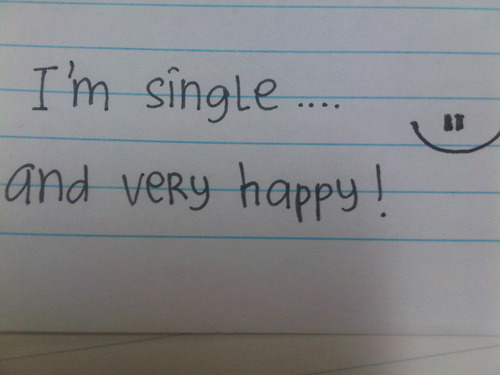 I'm single....
and very happy!